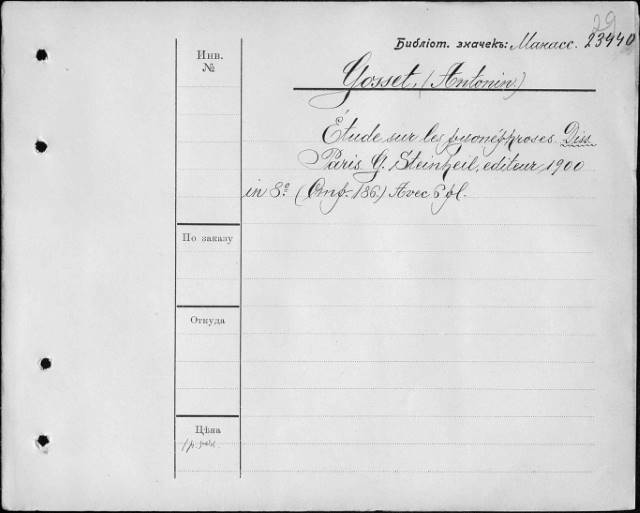 29
Библіот. значекъ: Манасс. 23440
Инв.
№
Gosset, (Antonin)
Étude sur les pyonéphroses. Diss.
Paris. G. Steinheil, editeur, 1900
in 8º (Стр. 186.) Avec 6 pl.
По заказу
Откуда
Цѣна